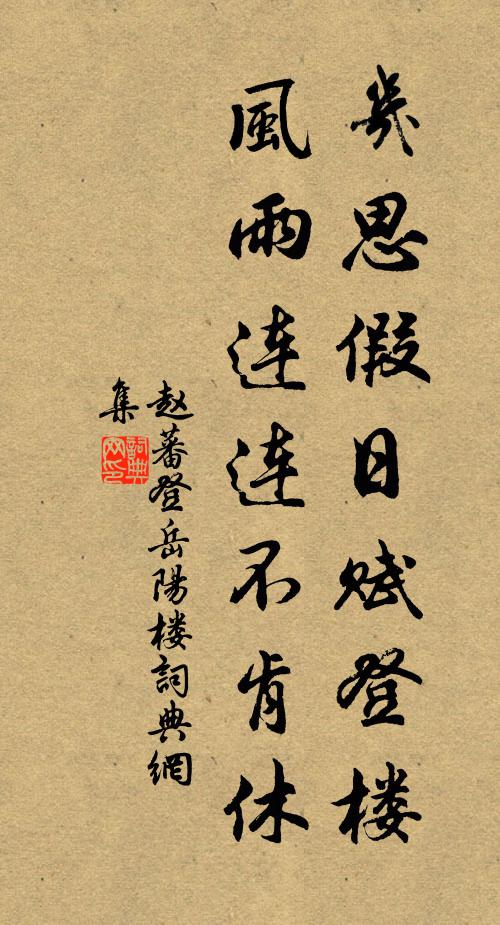 幾思假日赋登楼
風雨连连不肯休
赵蕃登岳陽楼詞典網
集
詞典网印